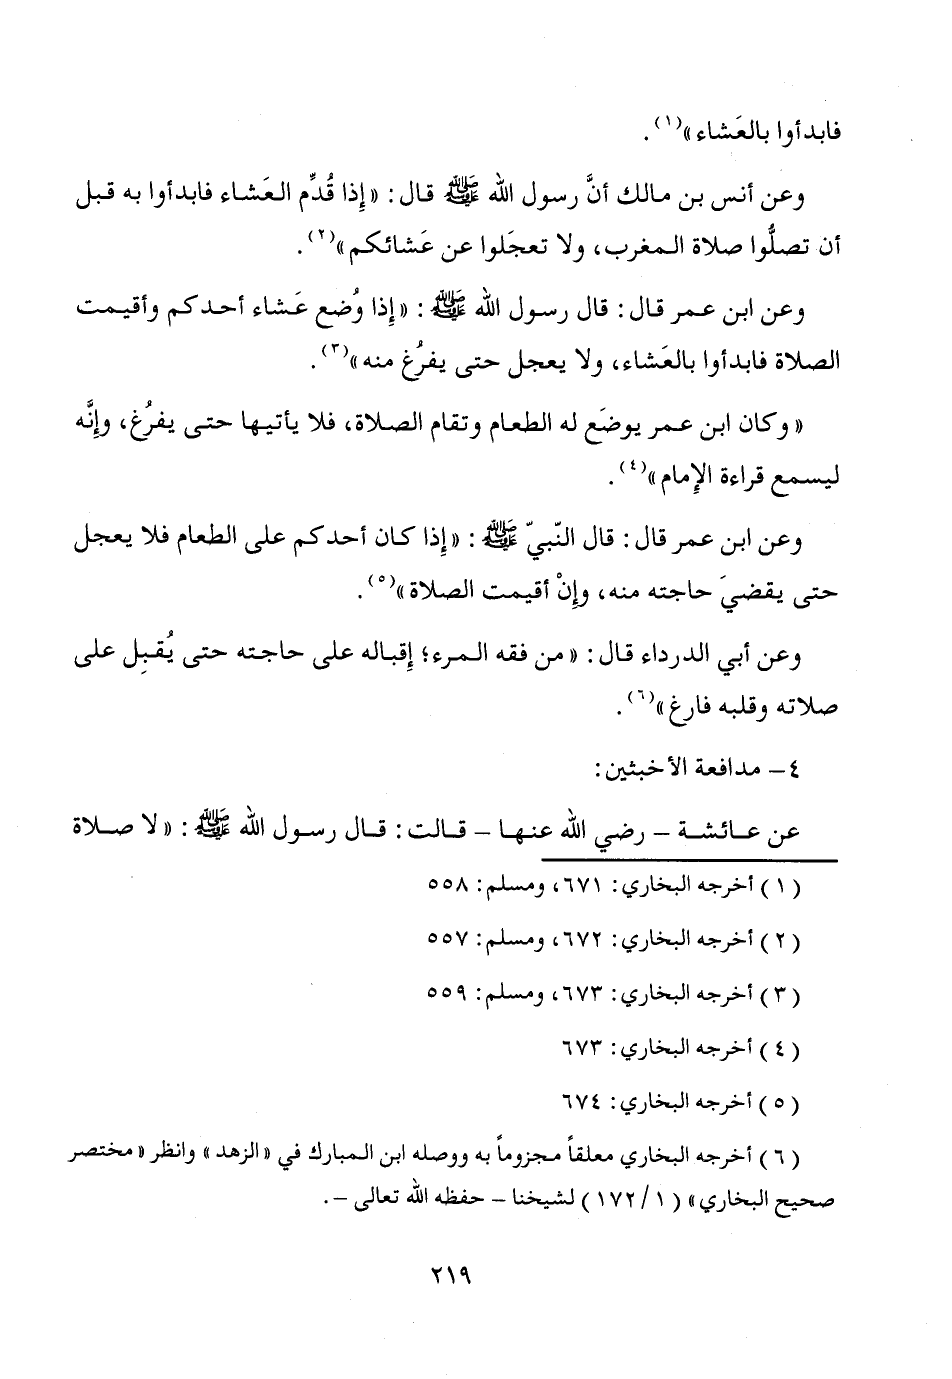 فابدأوا بالعَشاء»(١).
وعن أنس بن مالك أنَّ رسول الله ﷺ قال: «إِذا قُدِّم العَشاء فابدأوا به قبل
أن تصلُّوا صلاة المغرب، ولا تعجَلوا عن عَشائكم»(٢).
وعن ابن عمر قال: قال رسول الله ﷺ: «إِذا وُضع عَشاء أحدكم وأقيمت
الصلاة فابدأوا بالعَشاء، ولا يعجل حتى يفرُغ منه»(٣).
«وكان ابن عمر يوضَع له الطعام وتقام الصلاة، فلا يأتيها حتى يفرُغ، وإِنَّه
ليسمع قراءة الإِمام»(٤).
وعن ابن عمر قال: قال النّبيّ ﷺ: «إِذا كان أحدكم على الطعام فلا يعجل
حتى يقضيَ حاجته منه، وإِنْ أقيمت الصلاة»(٥).
وعن أبي الدرداء قال: «من فقه المرء؛ إِقباله على حاجته حتى يُقبِل على
صلاته وقلبه فارغ»(٦).
٤- مدافعة الأخبثين:
عن عائشة - رضي الله عنها - قالت: قال رسول الله ﷺ: «لا صلاة
(١) أخرجه البخاري: ٦٧١، ومسلم: ٥٥٨
(٢) أخرجه البخاري: ٦٧٢، ومسلم: ٥٥٧
(٣) أخرجه البخاري: ٦٧٣، ومسلم: ٥٥٩
(٤) أخرجه البخاري: ٦٧٣
(٥) أخرجه البخاري: ٦٧٤
(٦) أخرجه البخاري معلقاً مجزوماً به ووصله ابن المبارك في «الزهد» وانظر «مختصر
صحيح البخاري» (١/ ١٧٢) لشيخنا - حفظه الله تعالى -.
٢١٩